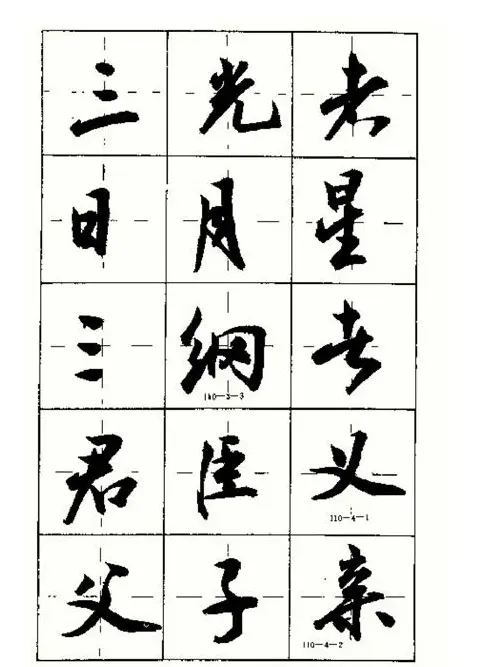 三光者
日月星
三纲者
110-3-3
君臣义
110-4-1
父子亲
110-4-2